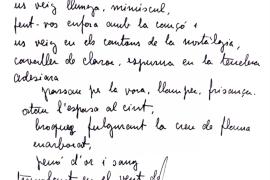 us veig llunyà, minúscul,
fent-vos enfora amb la cançó i
us veig en els cantons de la nostàlgia,
cavaller de claror, espurna en la tenebra
passau per la vora, llampec, frisança.
atau l'espasa al cint,
fulgurant la creu de flama
enarborat,
penó d'or i sang
en el vent de